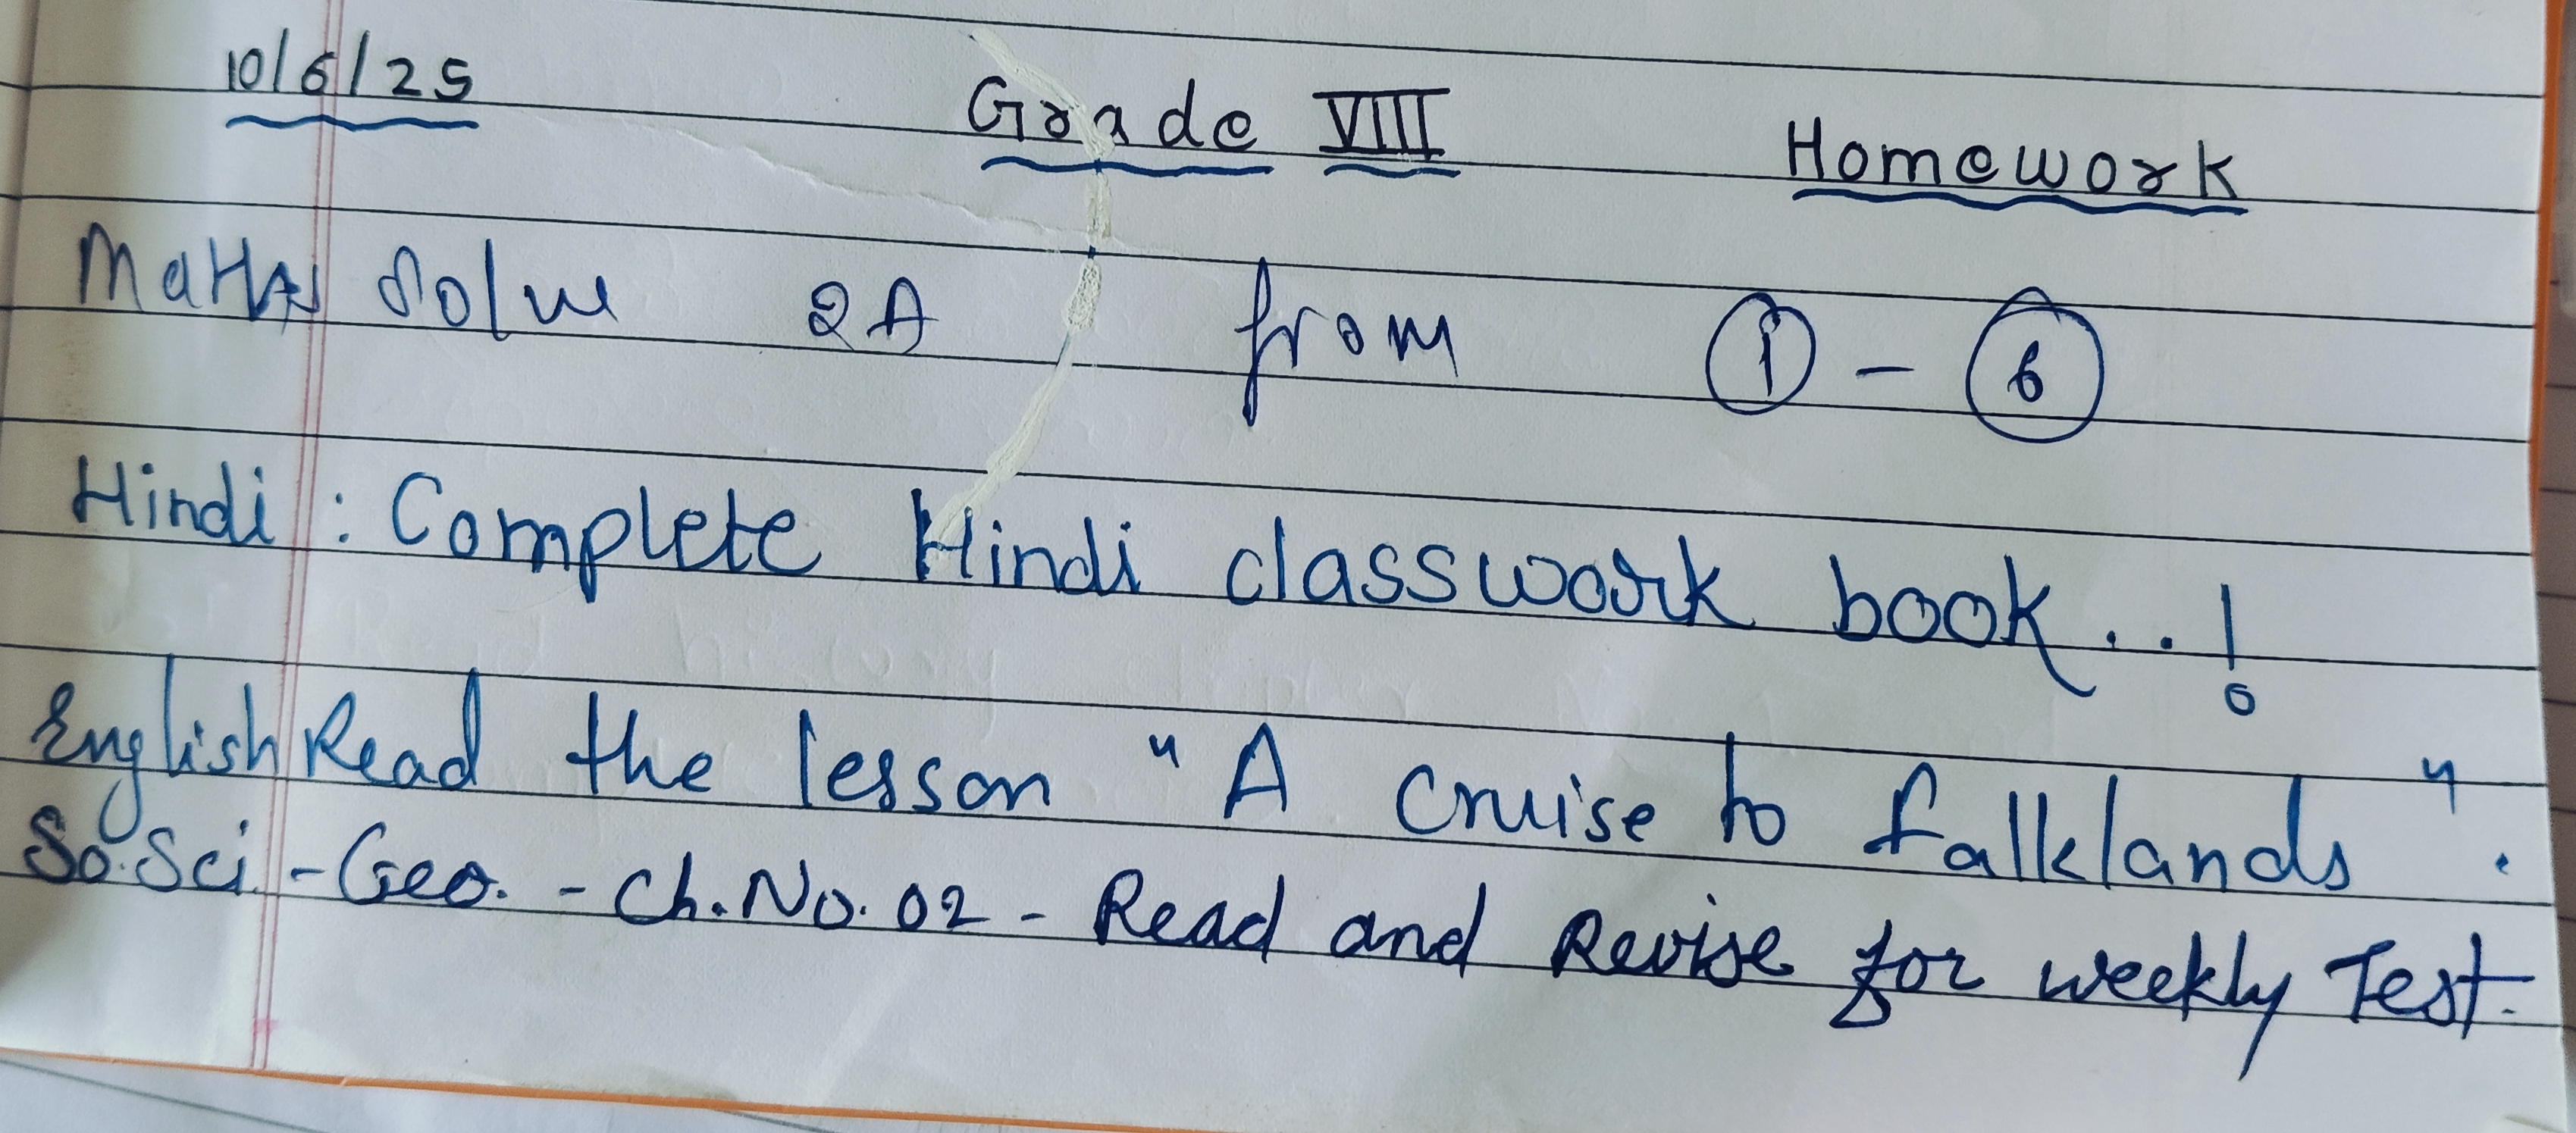 10/6/25 Grade VIII Homework
Maths Solve 2A from 1 - 6
Hindi : Complete Hindi classwork book..!
English Read the lesson "A cruise to falklands".
So.Sci - Geo. - Ch.No. 02 - Read and Revise for weekly Test.